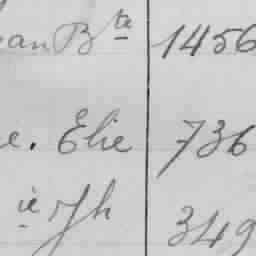 ean Bte 1456
e. Elie 736
ie Jh 349